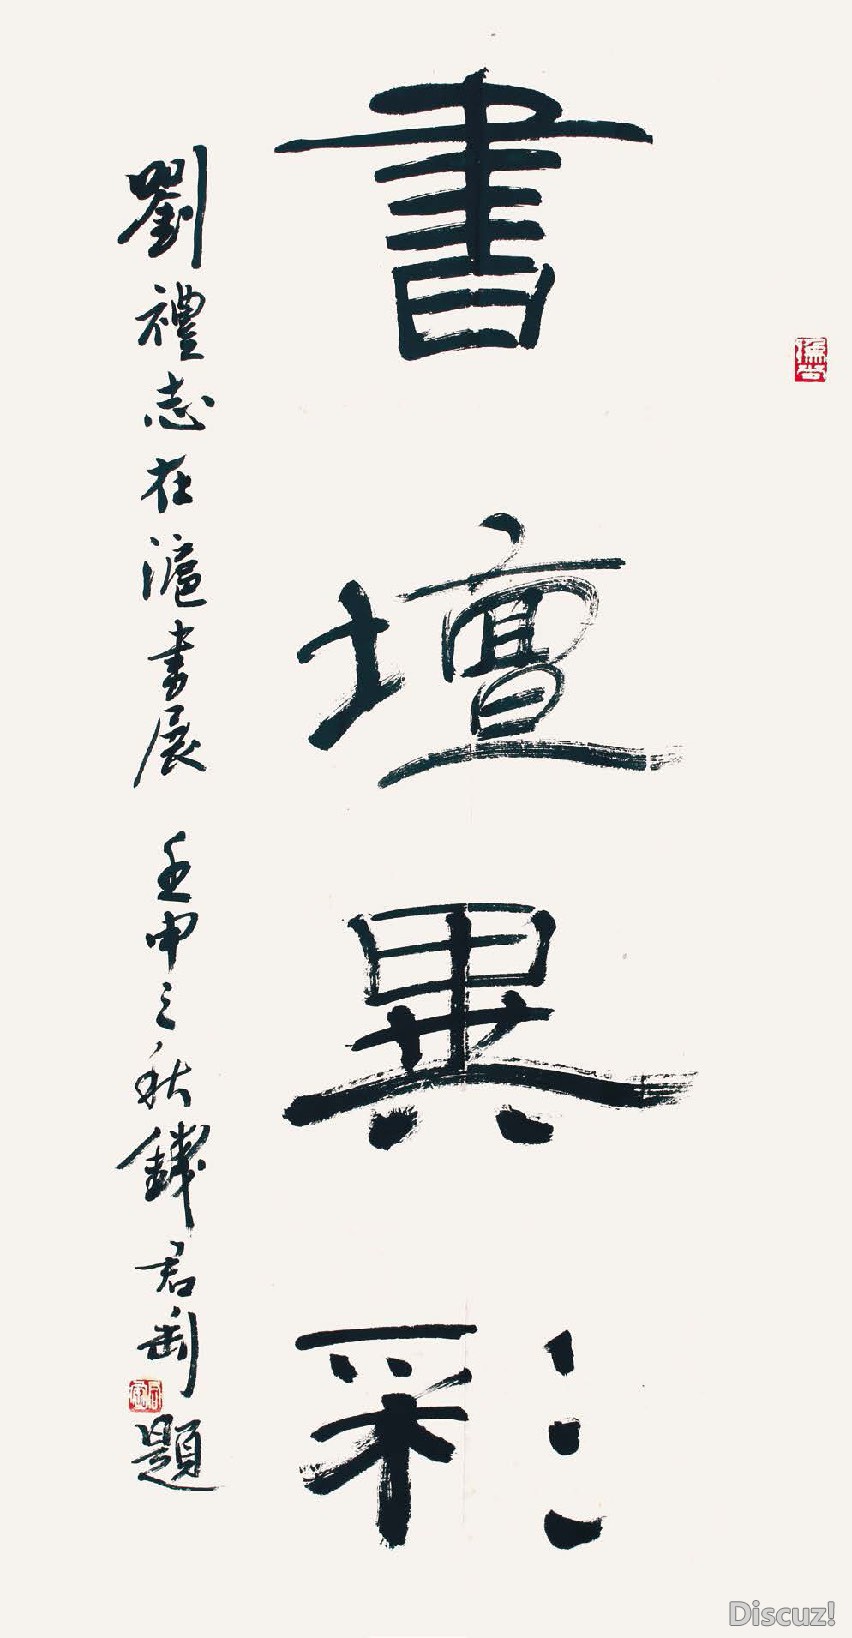 書壇異彩
劉禮志在滬書展 壬申之秋錢君匋題
Discuz!